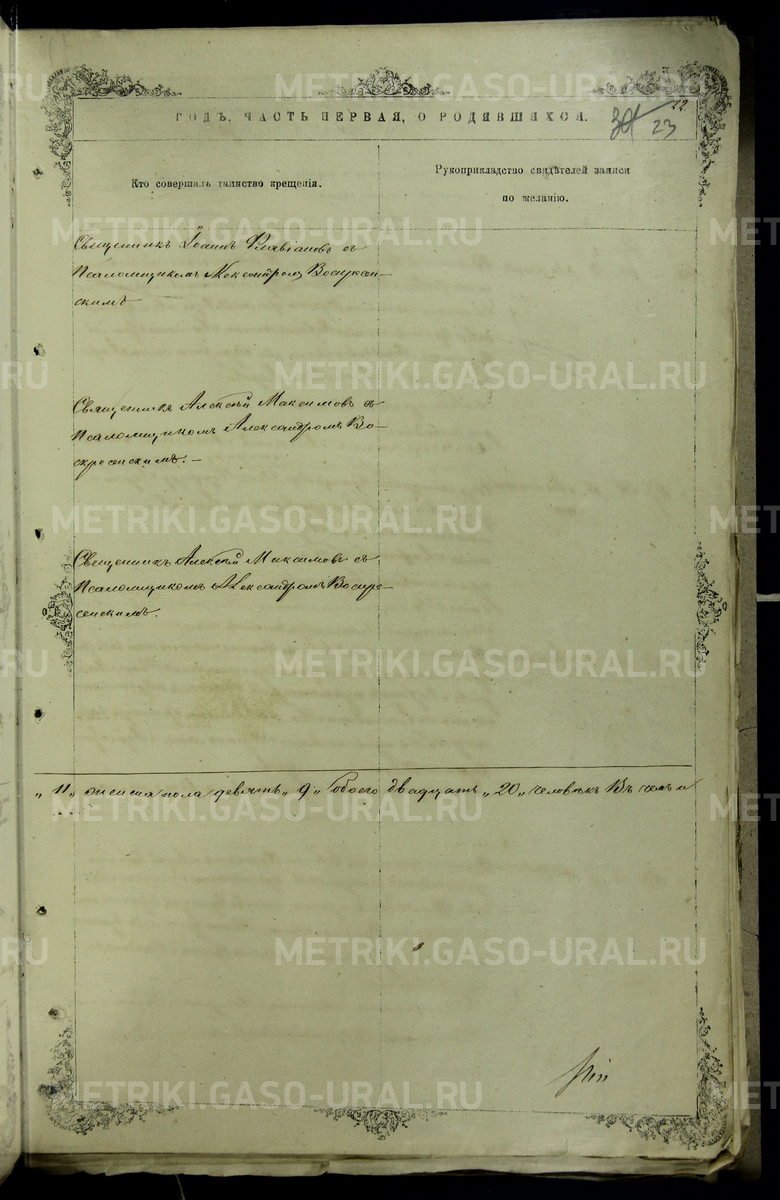 METRIKI.GASO-URAL.RU
ГОДЪ, ЧАСТЬ ПЕРВАЯ, О РОДИВШИХСЯ.
22
30
23
Кто совершалъ таинство крещенія.
Рукоприкладство свидѣтелей записи
по желанію.
Священникъ Іоаннъ Флавіановъ съ
Псаломщикомъ Александромъ Воскресен-
скимъ
Священникъ Алексѣй Максимовъ съ
Псаломщикомъ Александромъ Во-
скресенскимъ. –
Священникъ Алексѣй Максимовъ съ
Псаломщикомъ Александромъ Воскре-
сенскимъ.
„ 11 „ женска пола девять „ 9 „ Обоего двадцать „ 20 „ человѣкъ Въ чемъ и